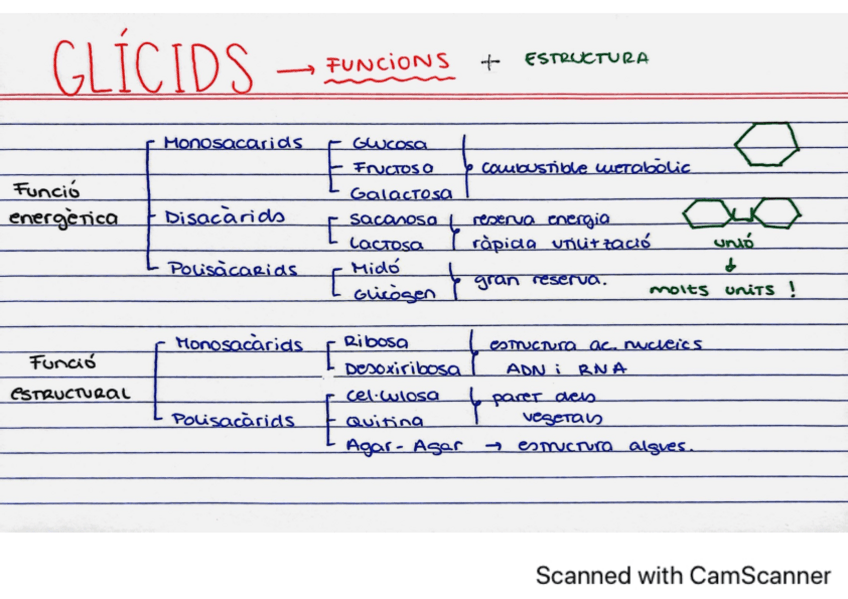 GLÍCIDS → FUNCIONS + ESTRUCTURA
Monosacarids Glucosa
Fructosa combustible metabòlic
Funció Galactosa
energètica Disacàrids sacarosa reserva energia
Lactosa ràpida utilització unió
Polisàcarids Midó
Glicògen gran reserva. molts units !
Monosacàrids Ribosa estructura ac. nucleics
Funció Desoxiribosa ADN i RNA
ESTRUCTURAL cel·lulosa paret dels
Polisacàrids Quitina vegetals
Agar-Agar → estructura algues.
Scanned with CamScanner